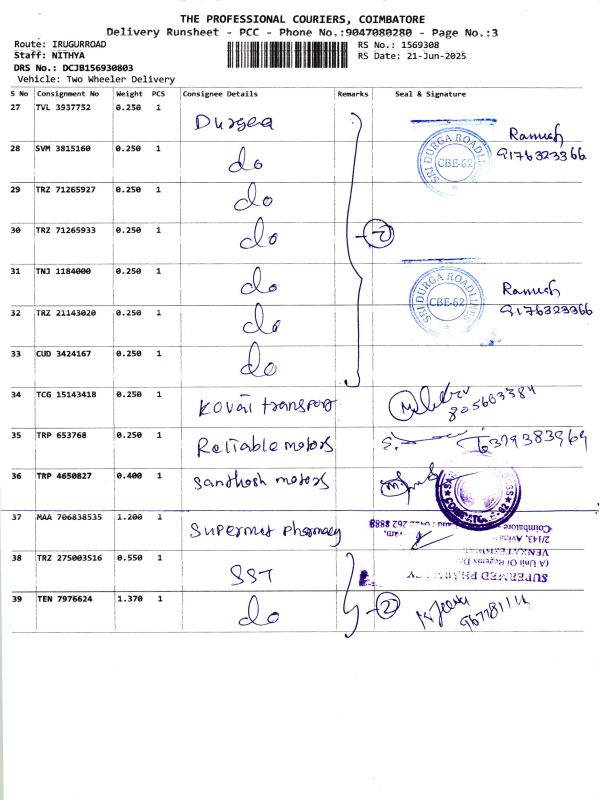 THE PROFESSIONAL COURIERS, COIMBATORE
Delivery Runsheet - PCC - Phone No.:9047080280 - Page No.:3
Route: IRUGURROAD RS No.: 1569308
Staff: NITHYA RS Date: 21-Jun-2025
DRS No.: DCJB156930803
Vehicle: Two Wheeler Delivery
S No Consignment No Weight PCS Consignee Details Remarks Seal & Signature
27 TVL 3937752 0.250 1 Durgea
28 SVM 3815160 0.250 1 do SRI DURGA ROADLINES CBE-62 Ramesh 9176323366
29 TRZ 71265927 0.250 1 do
30 TRZ 71265933 0.250 1 do 7
31 TNJ 1184000 0.250 1 do SRI DURGA ROADLINES CBE-62 Ramesh 9176323366
32 TRZ 21143020 0.250 1 do
33 CUD 3424167 0.250 1 do
34 TCG 15143418 0.250 1 Kovai transport
35 TRP 653768 0.250 1 Reliable motors 6379383969
36 TRP 4650827 0.400 1 Santhosh motors
37 MAA 706838535 1.200 1 Supermed pharmacy
38 TRZ 275003516 0.550 1 SST SUPERMED PHARMACY
39 TEN 7976624 1.370 1 do 2